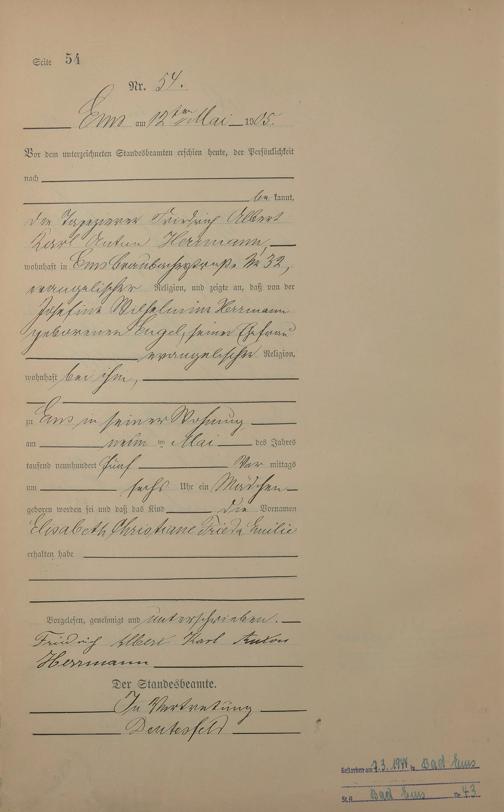 Seite 54
Nr. 54.
Ems am 12ten Mai 1905.
Vor dem unterzeichneten Standesbeamten erschien heute, der Persönlichkeit
nach
be kannt,
der Tapezierer Friedrich Albert
Karl Anton Herrmann,
wohnhaft in Ems Braubacherstraße № 32,
evangelischer Religion, und zeigte an, daß von der
Josefine Wilhelmine Herrmann
geborenen Engel, seiner Ehefrau
evangelischer Religion,
wohnhaft bei ihm,
zu Ems in seiner Wohnung
am neun ten Mai des Jahres
tausend neunhundert fünf Vor mittags
um sechs Uhr ein Mädchen
geboren worden sei und daß das Kind die Vornamen
Elisabeth Christiane Frieda Emilie
erhalten habe
Vorgelesen, genehmigt und unterschrieben.
Friedrich Albert Karl Anton
Herrmann
Der Standesbeamte.
In Vertretung
Gestorben am 7.3. in Bad Ems
St.A. Bad Ems Nr. 43